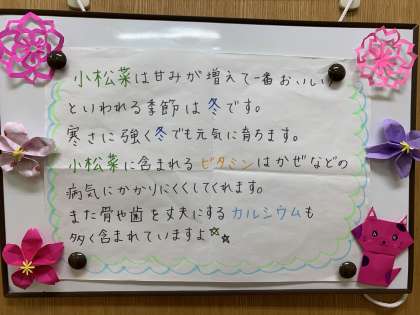 小松菜は甘みが増えて一番おいしい
といわれる季節は冬です。
寒さに強く冬でも元気に育ちます。
小松菜に含まれるビタミンはかぜなどの
病気にかかりにくくしてくれます。
また骨や歯を丈夫にするカルシウムも
多く含まれていますよ☆☆